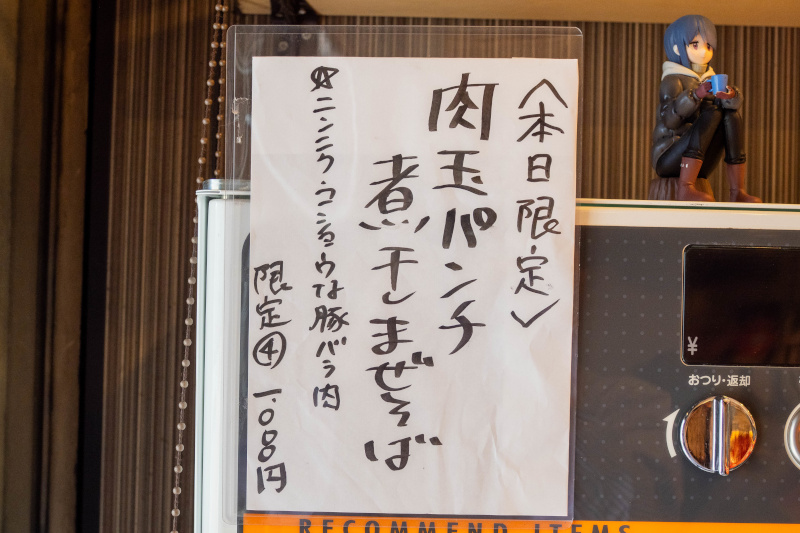 〈本日限定〉
肉玉パンチ
煮干しまぜそば
☆ニンニク・コショウな豚バラ肉
限定④ 一.〇〇〇円
¥
おつり・返却
RECOMMEND ITEMS